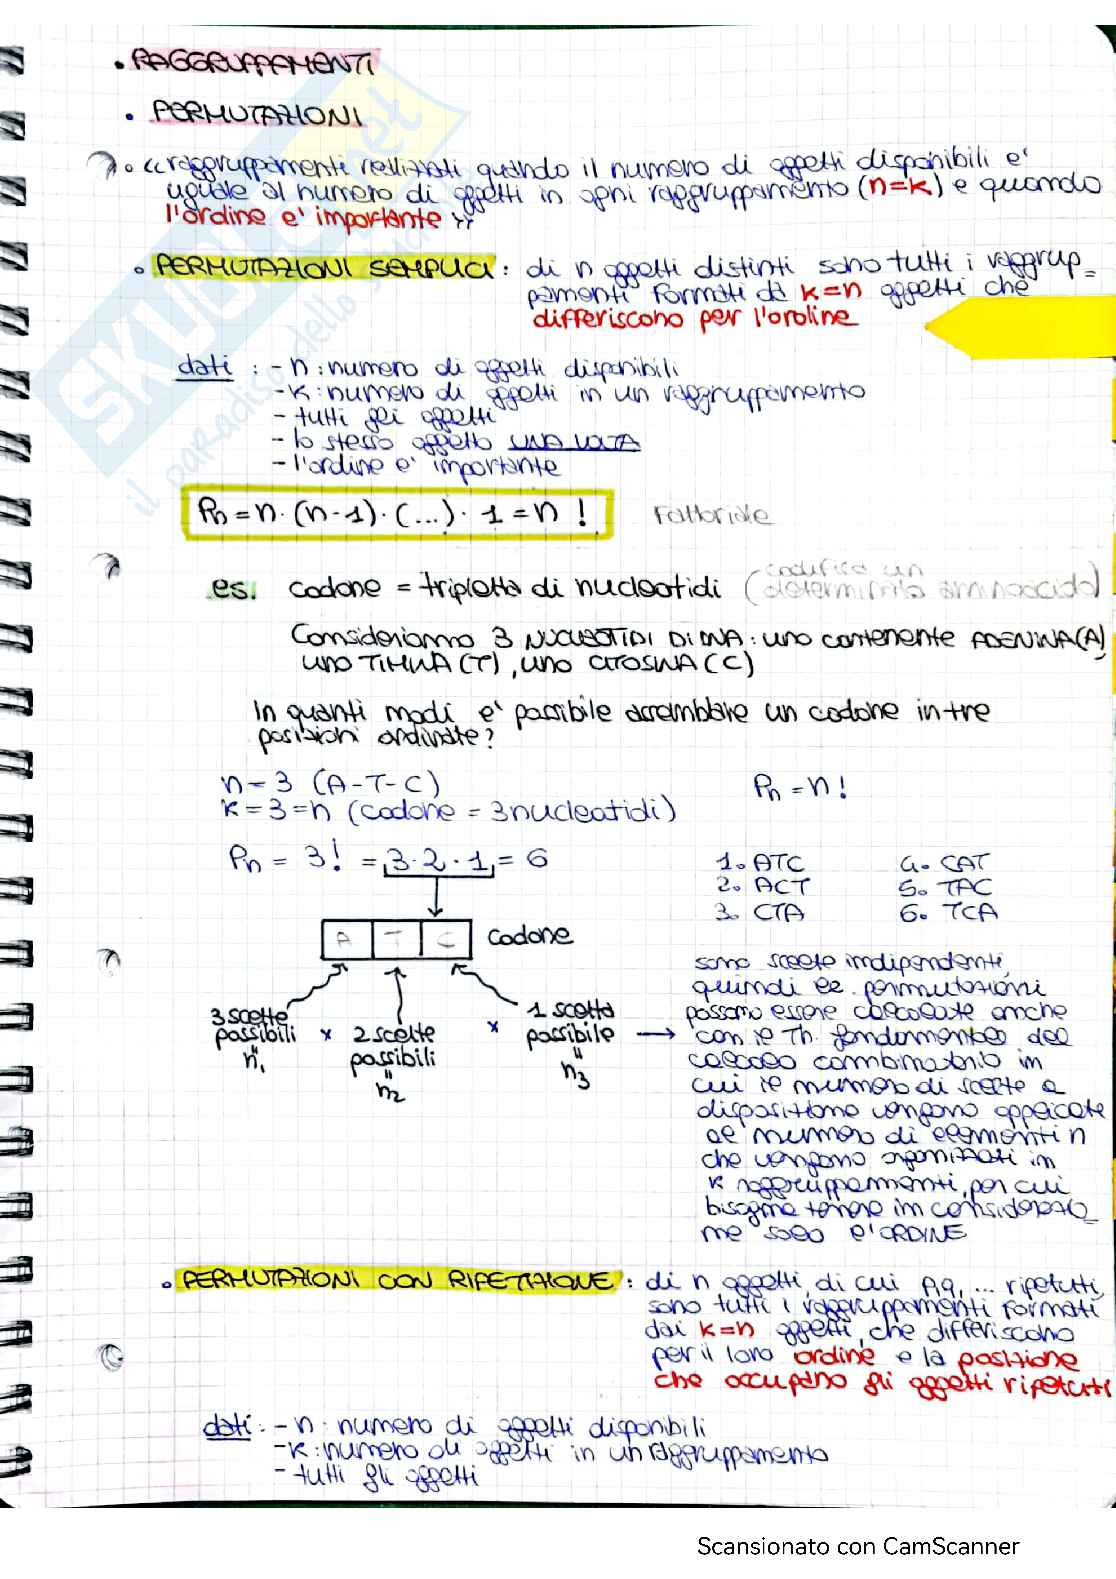 • RAGGRUPPAMENTI
• PERMUTAZIONI
• «raggruppamenti realizzati quando il numero di oggetti disponibili e'
uguale al numero di oggetti in ogni raggruppamento (n=k) e quando
l'ordine e' importante»
• PERMUTAZIONI SEMPLICI: di n oggetti distinti sono tutti i raggrup=
pamenti formati da k=n oggetti che
differiscono per l'ordine
dati: - n: numero di oggetti disponibili
- k: numero di oggetti in un raggruppamento
- tutti gli oggetti
- lo stesso oggetto UNA VOLTA
- l'ordine e' importante
Pn = n · (n-1) · (...) · 1 = n ! Fattoriale
es. codone = tripletta di nucleotidi (codifica un
determinato aminoacido)
Consideriamo 3 NUCLEOTIDI DI DNA: uno contenente ADENINA(A)
uno TIMINA(T), uno CITOSINA(C)
In quanti modi e' possibile assemblare un codone in tre
posizioni ordinate?
n = 3 (A-T-C)
k = 3 = n (codone = 3 nucleotidi)
Pn = n!
Pn = 3! = 3·2·1 = 6
1. ATC 4. CAT
2. ACT 5. TAC
3. CTA 6. TCA
A T C codone
3 scelte possibili = n1 x 2 scelte possibili = n2 x 1 scelta possibile = n3 →
sono scelte indipendenti,
quindi le permutazioni
possono essere calcolate anche
con il Th. fondamentale del
calcolo combinatorio in
cui il numero di scelte a
disposizione vengono applicate
al numero di elementi n
che vengono organizzati in
k raggruppamenti, per cui
bisogna tenere in considerazio
ne solo l'ORDINE
• PERMUTAZIONI CON RIPETIZIONE: di n oggetti, di cui ... ripetuti,
sono tutti i raggruppamenti formati
dai k=n oggetti, che differiscono
per il loro ordine e la posizione
che occupano gli oggetti ripetuti
dati: - n: numero di oggetti disponibili
- k: numero di oggetti in un raggruppamento
- tutti gli oggetti
SKUOLA.net
il paradiso dello studente
Scansionato con CamScanner